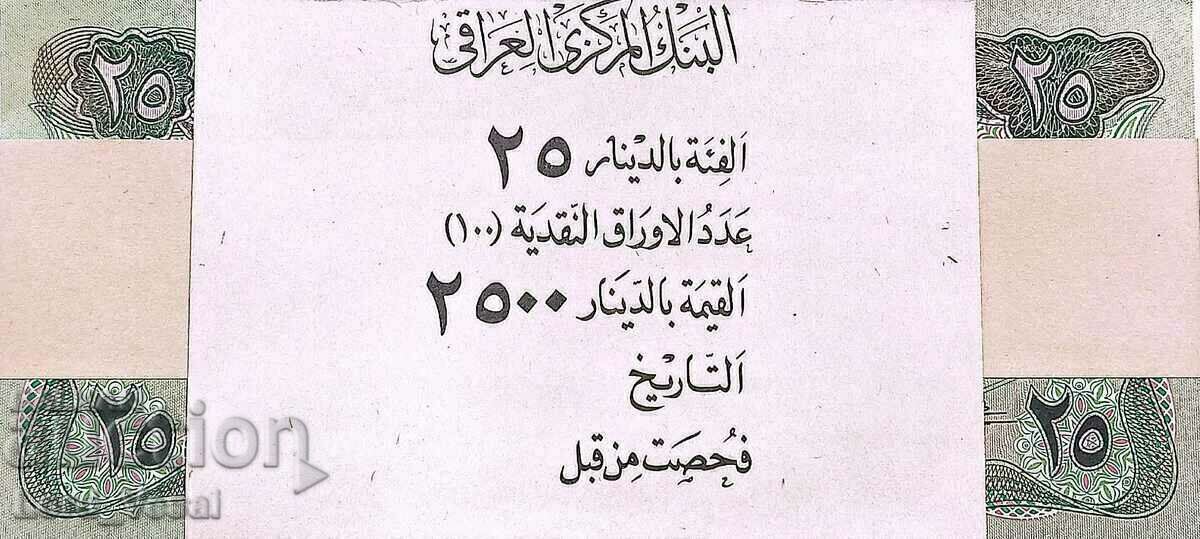 البنك المركزي العراقي
٢٥ ٢٥
الفئة بالدينار ٢٥
عدد الاوراق النقدية (١٠٠)
القيمة بالدينار ٢٥٠٠
التاريخ
٢٥ ٢٥
فحصت من قبل